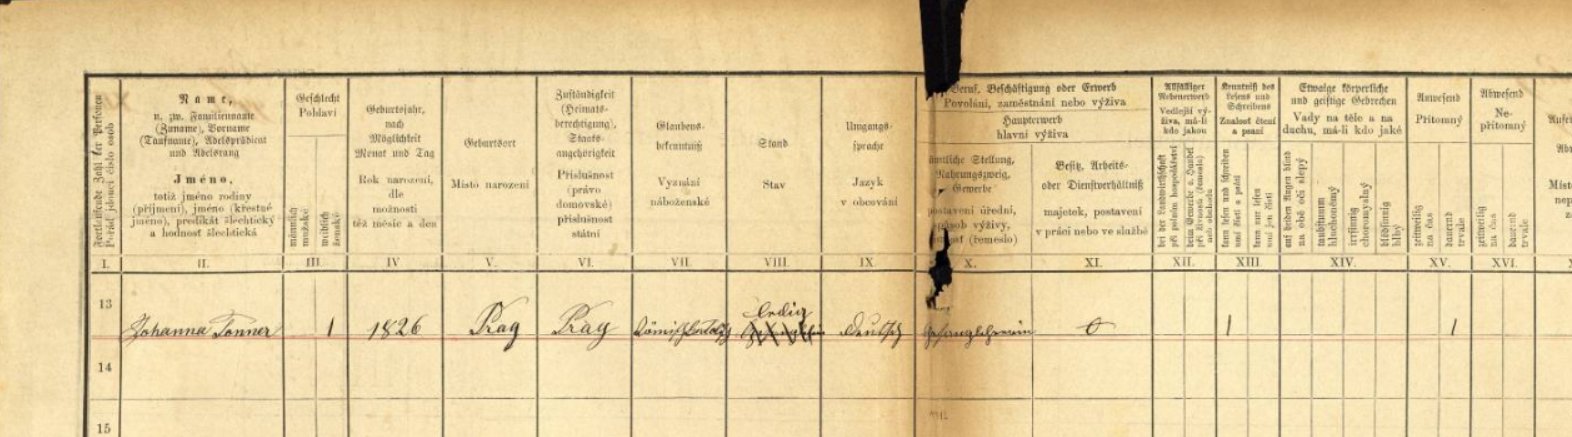 Fortlaufende Zahl der Personen
Pořád jdoucí číslo osob
Name,
u. zw. Familienname
(Zuname), Vorname
(Taufname), Adelsprädicat
und Adelsrang
Jméno,
totiž jméno rodiny
(příjmení), jméno (křestné
jméno), predikát šlechtický
a hodnost šlechtická
Geschlecht
Pohlaví
männlich
mužské
weiblich
ženské
Geburtsjahr,
nach
Möglichkeit
Monat und Tag
Rok narození,
dle
možnosti
též měsíc a den
Geburtsort
Místo narození
Zuständigkeit
(Heimats-
berechtigung),
Staats-
angehörigkeit
Příslušnost
(právo
domovské)
příslušnost
státní
Glaubens-
bekenntniß
Vyznání
náboženské
Stand
Stav
Umgangs-
sprache
Jazyk
v obcování
Beruf, Beschäftigung oder Erwerb
Povolání, zaměstnání nebo výživa
Haupterwerb
hlavní výživa
Stellung,
Nahrungszweig,
Gewerbe
postavení úřední,
výživy,
(řemeslo)
Besitz, Arbeits-
oder Dienstverhältniß
majetek, postavení
v práci nebo ve službě
Allfälliger
Nebenerwerb
Vedlejší vý-
živa, má-li
kdo jakou
bei der Landwirthschaft
při polním hospodářství
beim Gewerbe o. Handel
při živnosti (řemesle)
neb obchodu
Kenntniß des
Lesens und
Schreibens
Znalost čtení
a psaní
kann lesen und schreiben
umí čísti a psáti
kann nur lesen
umí jen čísti
Etwaige körperliche
und geistige Gebrechen
Vady na těle a na
duchu, má-li kdo jaké
auf beiden Augen blind
na obě oči slepý
taubstumm
hluchoněmý
irrsinnig
choromyslný
blödsinnig
blbý
Anwesend
Přítomný
zeitweilig
na čas
dauernd
trvale
Abwesend
Ne-
přítomný
zeitweilig
na čas
dauernd
trvale
I. II. III. IV V. VI. VII. VIII. IX. X. XI. XII. XIII. XIV. XV. XVI.
13
ledig
Johanna Tonner 1 1826 Prag Prag römischkatholisch deutsch Gesangslehrerin 0 1 1
14
15